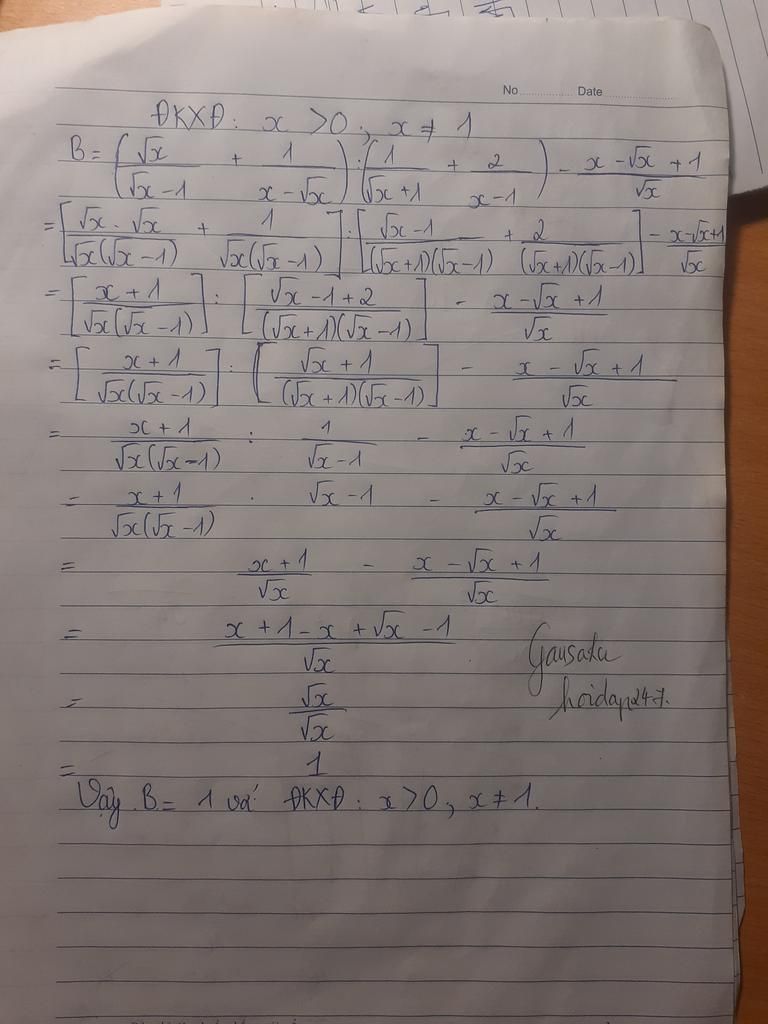 No Date
ĐKXĐ: x > 0, x ≠ 1
B = (√x/(√x-1) + 1/(x-√x)) : (1/(√x+1) + 2/(x-1)) - (x-√x+1)/√x
= [√x.√x/(√x(√x-1)) + 1/(√x(√x-1))] : [(√x-1)/((√x+1)(√x-1)) + 2/((√x+1)(√x-1))] - (x-√x+1)/√x
= [(x+1)/(√x(√x-1))] : [(√x-1+2)/((√x+1)(√x-1))] - (x-√x+1)/√x
= [(x+1)/(√x(√x-1))] : [(√x+1)/((√x+1)(√x-1))] - (x-√x+1)/√x
= (x+1)/(√x(√x-1)) : 1/(√x-1) - (x-√x+1)/√x
= (x+1)/(√x(√x-1)) . √x-1 - (x-√x+1)/√x
= (x+1)/√x - (x-√x+1)/√x
= (x+1-x+√x-1)/√x
= √x/√x
= 1
Vậy B = 1 với ĐKXĐ: x > 0, x ≠ 1.
hoidap247.